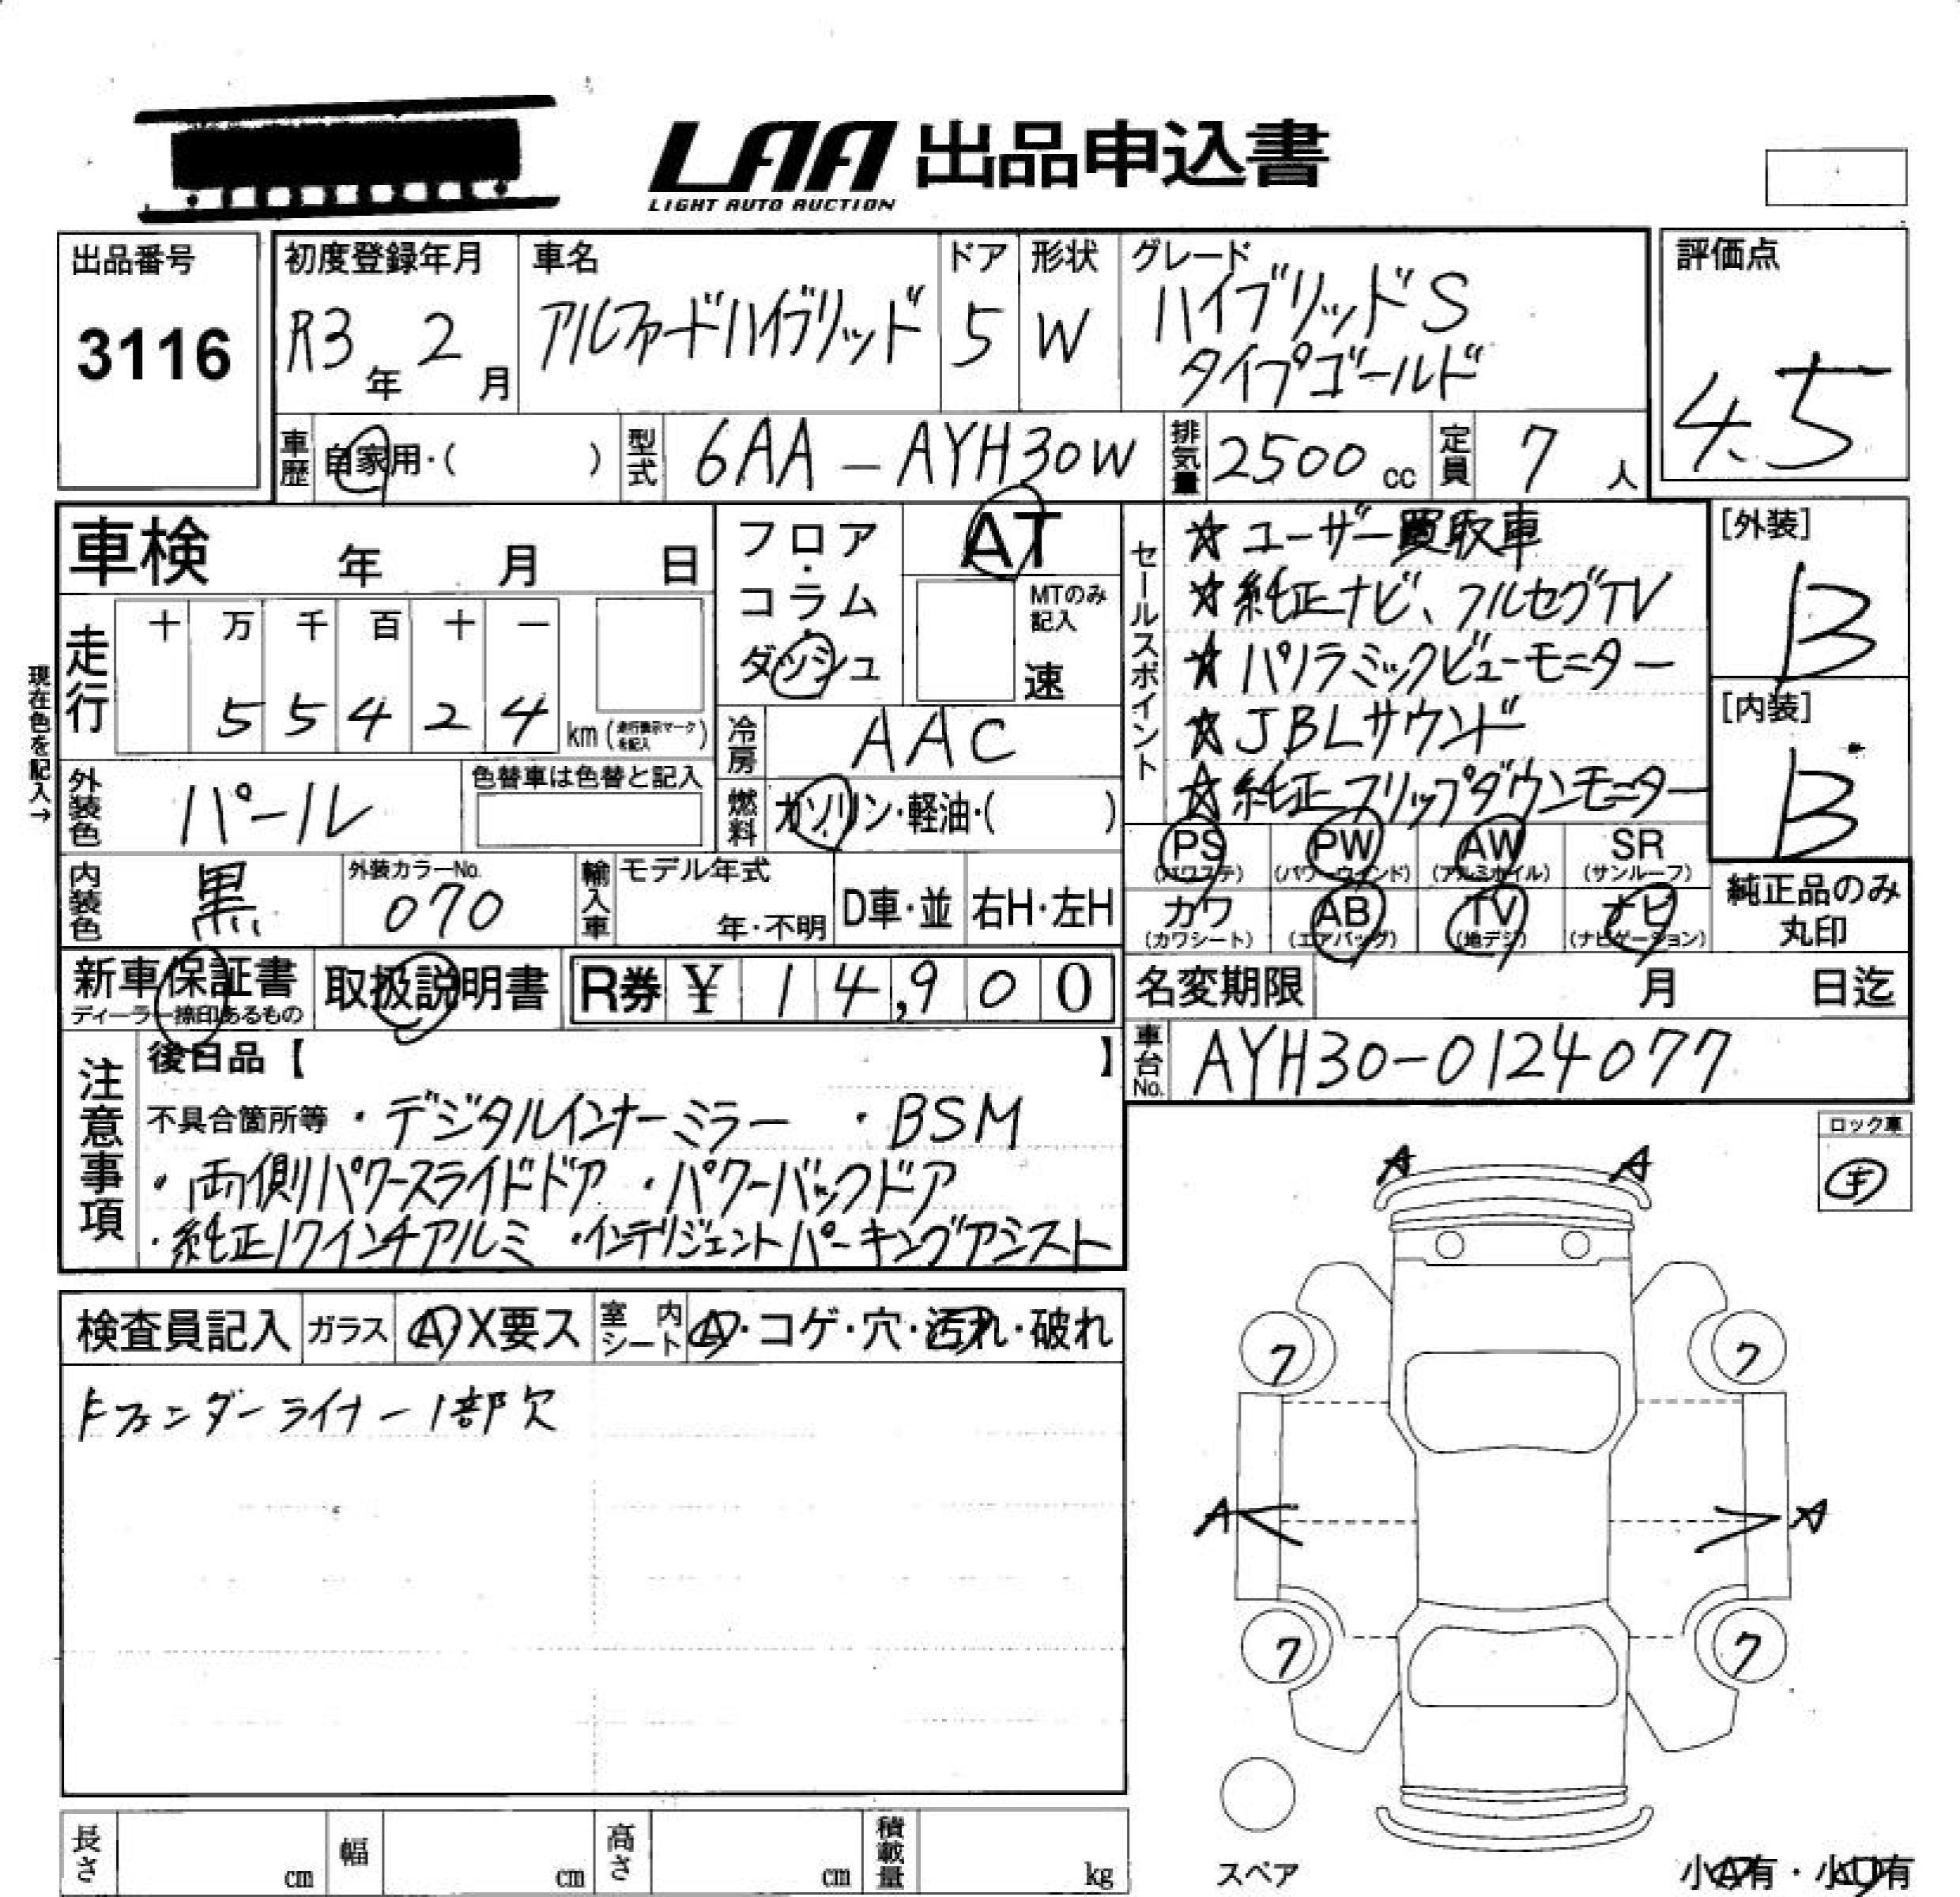 LAA 出品申込書
LIGHT AUTO AUCTION
出品番号
3116
初度登録年月
R3年 2月
車名
アルファードハイブリッド
ドア
5
形状
W
グレード
ハイブリッドS
タイプゴールド
評価点
4.5
車歴 自家用・( )
型式 6AA-AYH30W
排気量 2500cc
定員 7人
車検 年 月 日
現在色を記入→
走行
十 万 千 百 十 一
5 5 4 2 4 km
(走行表示マークを記入)
フロア・コラム・ダッシュ
AT
MTのみ記入
速
冷房 AAC
燃料 ガソリン・軽油・( )
外装色 パール
色替車は色替と記入
内装色 黒
外装カラーNo.
070
輸入車
モデル年式
年・不明
D車・並
右H・左H
セールスポイント
☆ユーザー買取車
☆純正ナビ、フルセグTV
☆パノラミックビューモニター
☆JBLサウンド
☆純正フリップダウンモニター
[外装]
B
[内装]
B
PS (パワステ)
PW (パワーウィンド)
AW (アルミホイル)
SR (サンルーフ)
カワ (カワシート)
AB (エアバッグ)
TV (地デジ)
ナビ (ナビゲーション)
純正品のみ
丸印
新車保証書
ディーラー捺印あるもの
取扱説明書
R券 ¥ 14,900
名変期限 月 日迄
車台No. AYH30-0124077
注意事項
後日品【 】
不具合箇所等 ・デジタルインナーミラー ・BSM
・両側パワースライドドア ・パワーバックドア
・純正17インチアルミ ・インテリジェントパーキングアシスト
ロック車
検査員記入
ガラス A・X要ス
室内シート A・コゲ・穴・汚れ・破れ
フェンダーライナー1部欠
A A
7 7
A A
7 7
スペア
小A有・小U有
長さ cm
幅 cm
高さ cm
積載量 kg